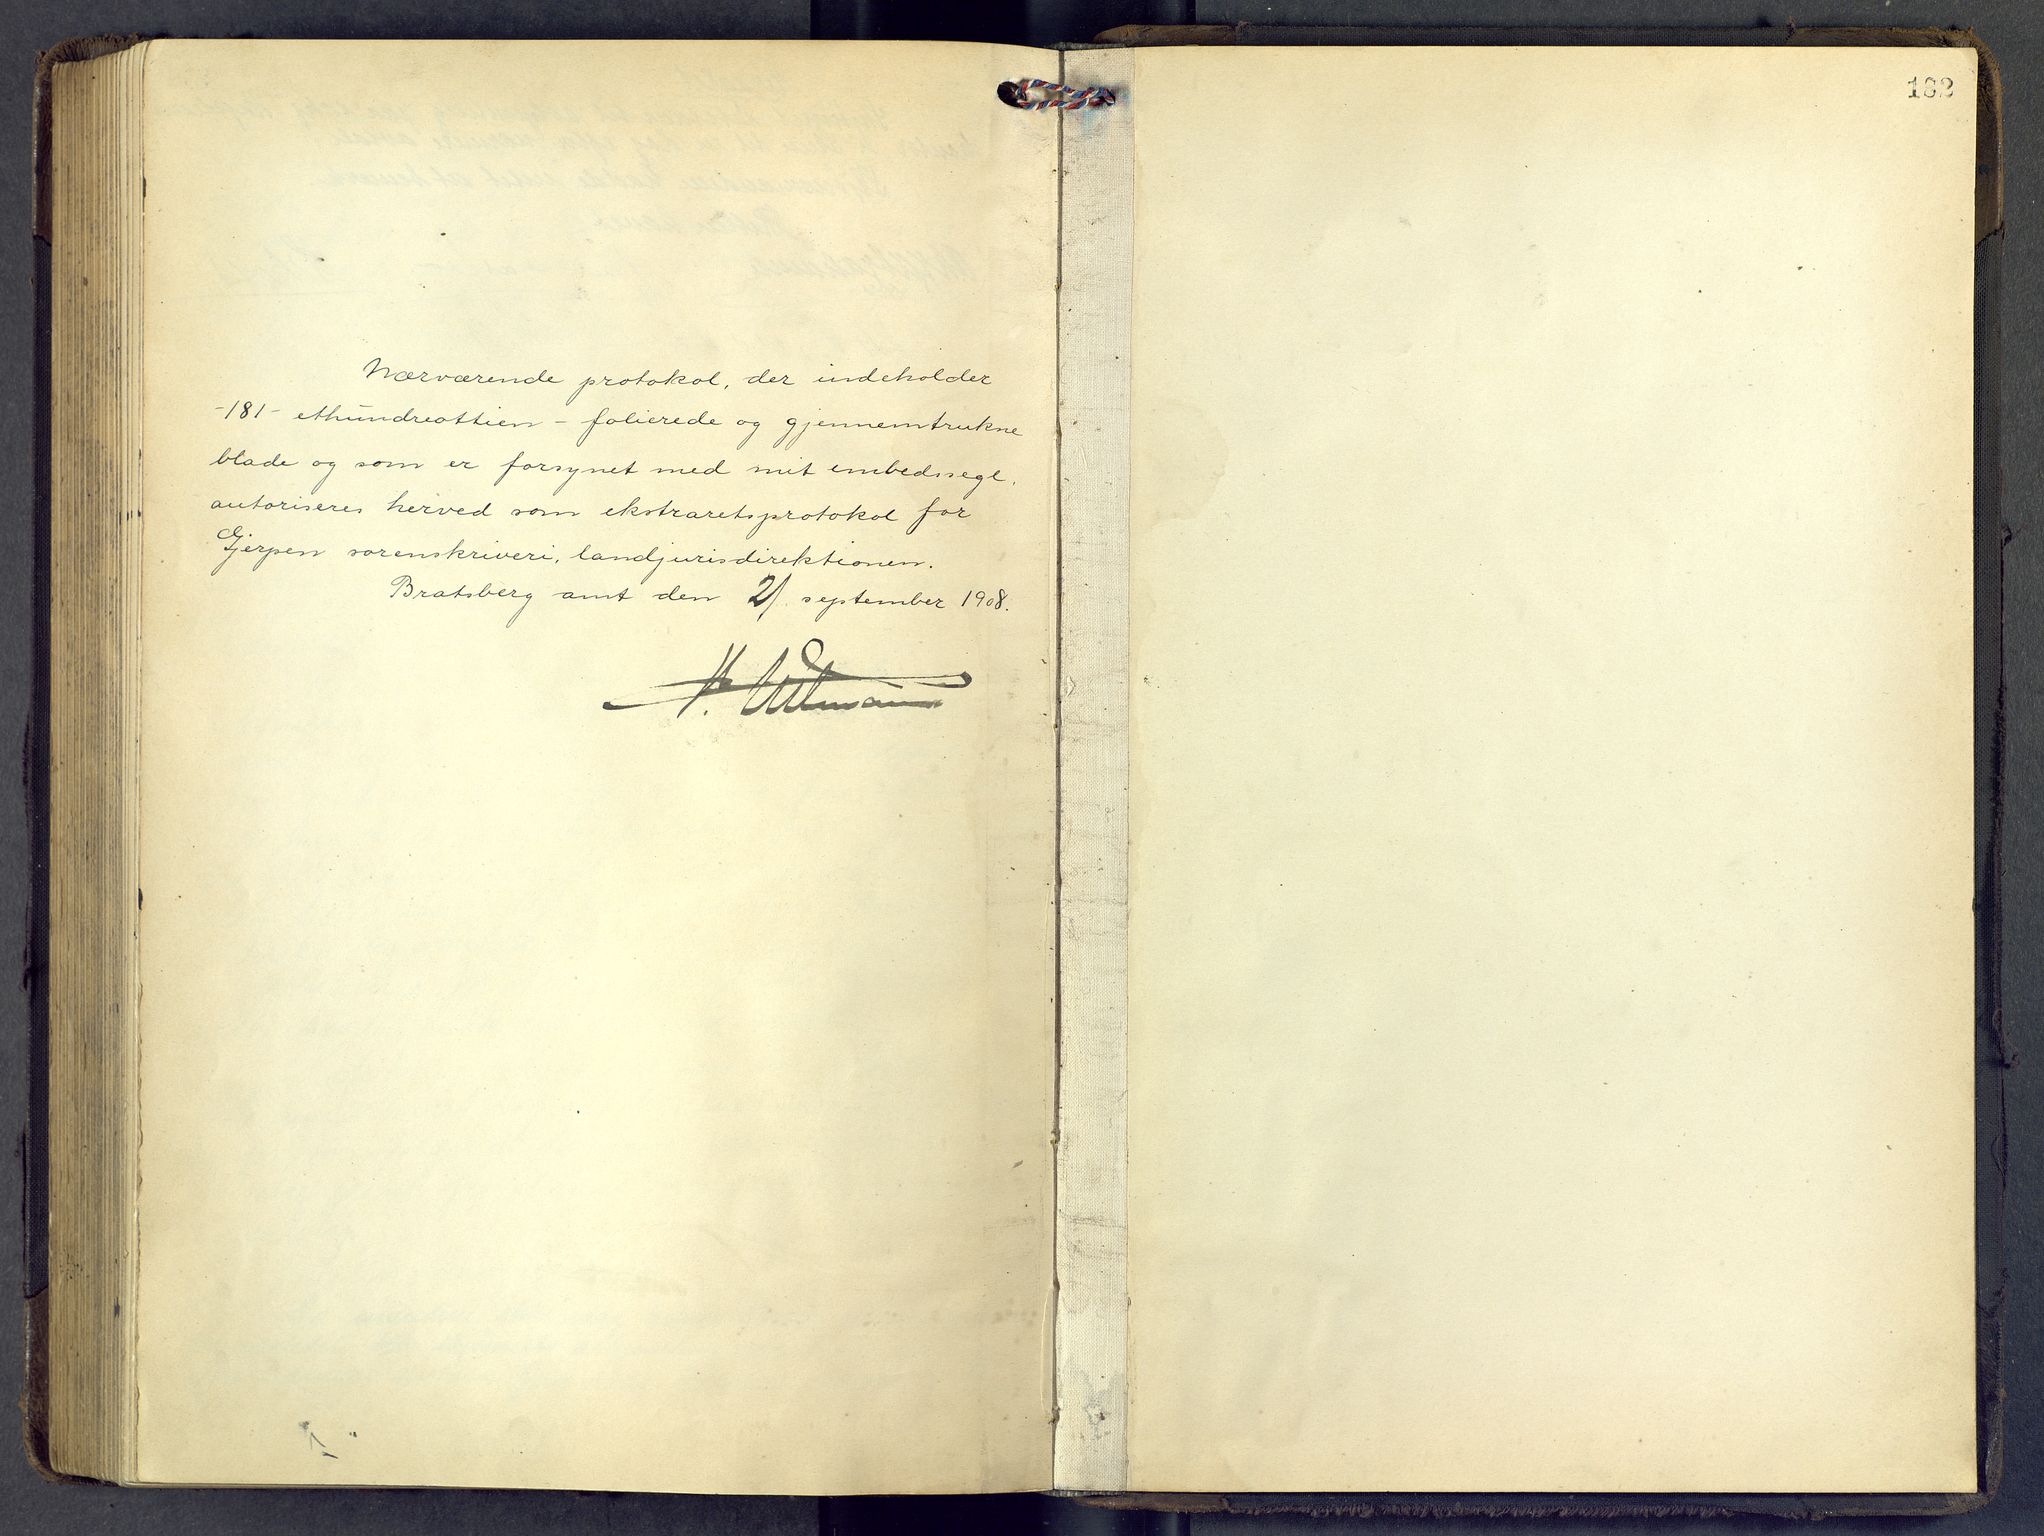 Nærværende protokol, der indeholder
-181- ethundreottien - folierede og gjennemtrukne
blade og som er forsynet med mit embedssegl,
autoriseres herved som ekstraretsprotokol for
Gjerpen sorenskriveri, landjurisdirektionen.
Bratsberg amt den 21. september 1908.
182